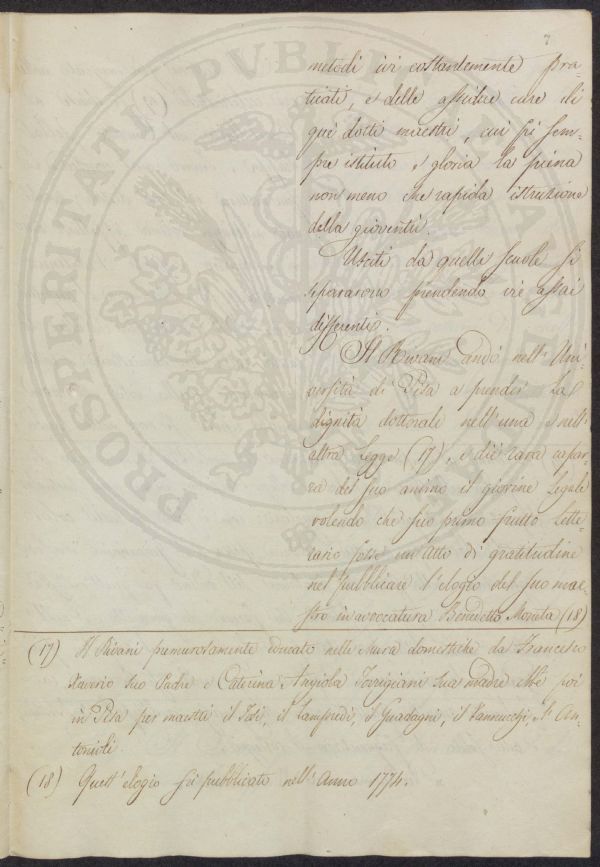 7
metodi ivi costantemente pra-
ticati, e delle assidue cure di
que' dotti maestri, cui fu sem-
pre istituto e gloria la piena
non meno che rapida istruzione
della gioventù.
Usciti da quelle scuole si
separarono prendendo vie assai
differenti.
Il Pivani andò nell' Uni-
versità di Pisa a prender la
dignità dottorale nell'una e nell'
altra Legge (17), e diè rara capar-
ra del suo animo il giovine Legale
volendo che suo primo frutto Lette-
rario fosse un atto di gratitudine
nel pubblicare l'elogio del suo mae-
stro in avvocatura Benedetto (18)
(17) Il Pivani premurosamente educato nelle Mura domestiche da Francesco
Xaverio suo Padre e Caterina Angiola Torrigiani sua madre ebbe poi
in Pisa per maestri il Tosi, il Lampredi, il Guadagni, il Vannucchj, l' An-
tonioli.
(18) Quest' elogio fù pubblicato nell' Anno 1774.
PROSPERITATI PVBLI